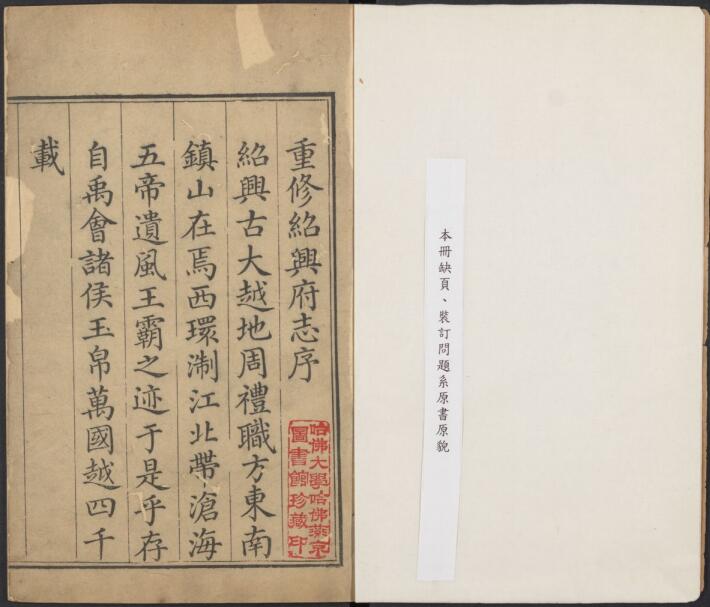 本冊缺頁、裝訂問題系原書原貌
重修紹興府志序
紹興古大越地周禮職方東南
鎮山在焉西環淛江北帶滄海
五帝遺風王霸之迹于是乎存
自禹會諸侯玉帛萬國越四千
載
哈佛大學哈佛燕京
圖書館珍藏印